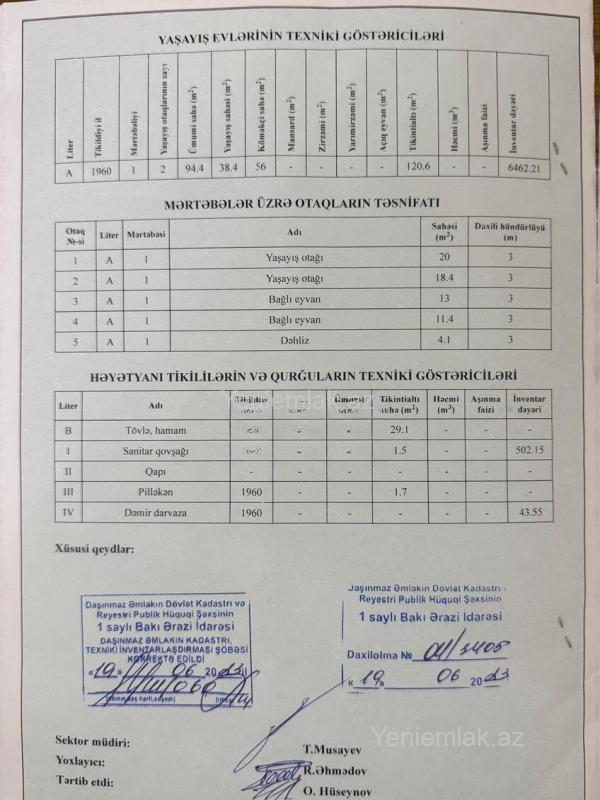 YAŞAYIŞ EVLƏRİNİN TEXNİKİ GÖSTƏRİCİLƏRİ
Liter Tikildiyi il Mərtəbəliyi Yaşayış otaqlarının sayı Ümumi sahə (m²) Yaşayış sahəsi (m²) Köməkçi sahə (m²) Mansard (m²) Zirzəmi (m²) Yarımzirzəmi (m²) Açıq eyvan (m²) Tikintialtı (m²) Həcmi (m³) Aşınma faizi İnventar dəyəri
A 1960 1 2 94.4 38.4 56 - - - - 120.6 - - 6462.21
MƏRTƏBƏLƏR ÜZRƏ OTAQLARIN TƏSNİFATI
Otaq №-si Liter Mərtəbəsi Adı Sahəsi (m²) Daxili hündürlüyü (m)
1 A 1 Yaşayış otağı 20 3
2 A 1 Yaşayış otağı 18.4 3
3 A 1 Bağlı eyvan 13 3
4 A 1 Bağlı eyvan 11.4 3
5 A 1 Dəhliz 4.1 3
HƏYƏTYANI TİKİLİLƏRİN VƏ QURĞULARIN TEXNİKİ GÖSTƏRİCİLƏRİ
Liter Adı Tikildiyi Ümumi Tikintialtı sahə (m²) Həcmi (m³) Aşınma faizi İnventar dəyəri
B Tövlə, hamam - - 29.1 - - -
I Sanitar qovşağı - - 1.5 - - 502.15
II Qapı - - - - - - -
III Pilləkən 1960 - - 1.7 - - -
IV Dəmir darvaza 1960 - - - - - 43.55
Yeniemlak.az
Xüsusi qeydlər:
Daşınmaz Əmlakın Dövlət Kadastrı və
Reyestri Publik Hüquqi Şəxsinin
1 saylı Bakı Ərazi İdarəsi
DAŞINMAZ ƏMLAKIN KADASTRI,
TEXNİKİ İNVENTARLAŞDIRMASI ŞÖBƏSİ
KORREKTƏ EDİLDİ
«19» 06 2023
Daşınmaz Əmlakın Dövlət Kadastrı
Reyestri Publik Hüquqi Şəxsinin
1 saylı Bakı Ərazi İdarəsi
Daxilolma №
«19» 06 2023
Yeniemlak.az
Sektor müdiri: T.Musayev
Yoxlayıcı: R.Əhmədov
Tərtib etdi: O. Hüseynov